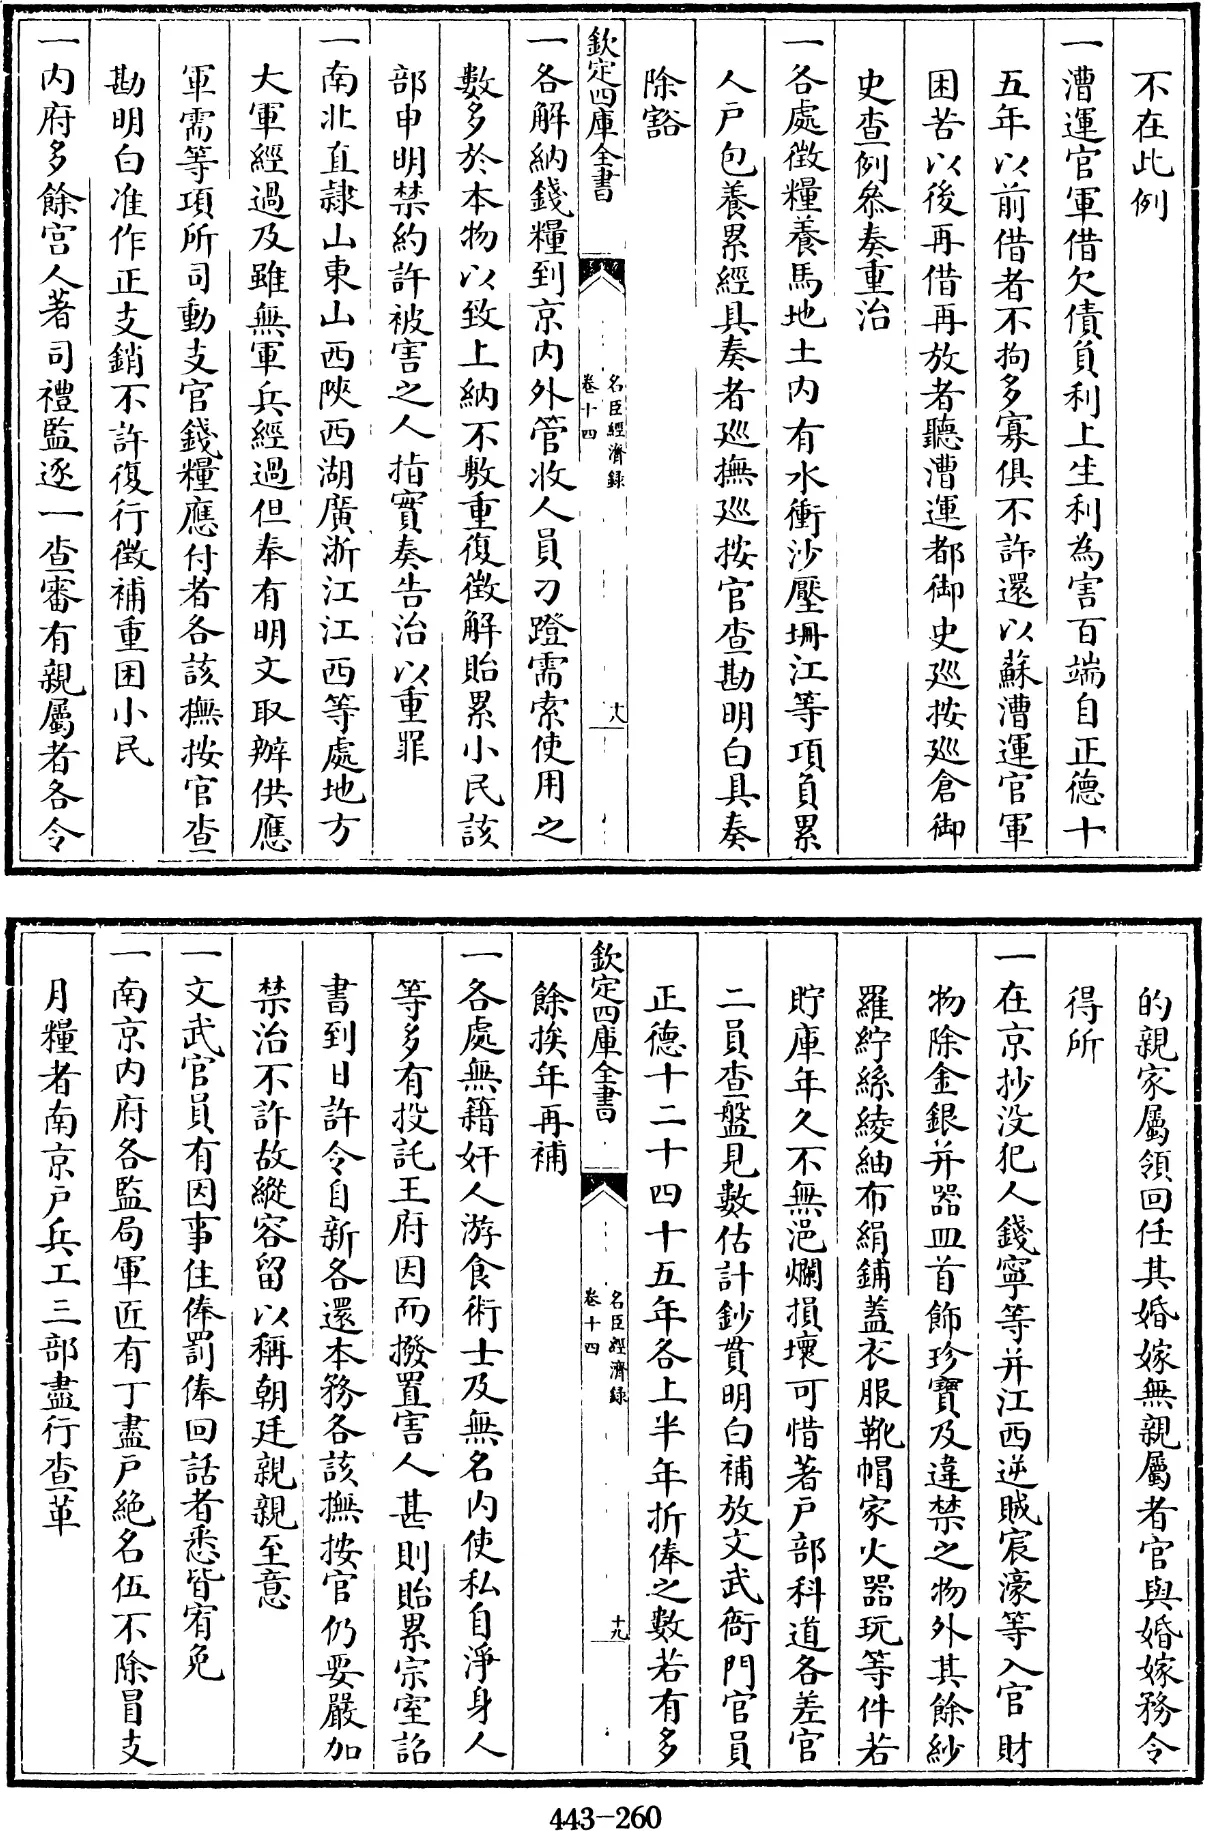 不在此例
一漕運官軍借欠債負利上生利為害百端自正德十
五年以前借者不拘多寡俱不許還以蘇漕運官軍
困苦以後再借再放者聽漕運都御史巡按巡倉御
史查例叅奏重治
一各處徵糧養馬地土内有水衝沙壓坍江等項負累
人戶包養累經具奏者巡撫巡按官查勘明白具奏
除豁
欽定四庫全書
名臣經濟録
卷十四
十八
一各解納錢糧到京内外管收人員刁蹬需索使用之
數多於本物以致上納不敷重復徵解貽累小民該
部申明禁約許被害之人指實奏告治以重罪
一南北直隷山東山西陜西湖廣浙江江西等處地方
大軍經過及雖無軍兵經過但奉有明文取辦供應
軍需等項所司動支官錢糧應付者各該撫按官查
勘明白准作正支銷不許復行徵補重困小民
一内府多餘宫人著司禮監逐一查審有親屬者各令
的親家屬領回任其婚嫁無親屬者官與婚嫁務令
得所
一在京抄没犯人錢寧等并江西逆賊宸濠等入官財
物除金銀并器皿首飾珍寶及違禁之物外其餘紗
羅紵絲綾紬布絹鋪蓋衣服靴帽家火器玩等件若
貯庫年久不無浥爛損壞可惜著戶部科道各差官
二員查盤見數估計鈔貫明白補放文武衙門官員
正德十二十四十五年各上半年折俸之數若有多
欽定四庫全書
名臣經濟録
卷十四
十九
餘挨年再補
一各處無籍奸人游食術士及無名内使私自淨身人
等多有投託王府因而撥置害人甚則貽累宗室詔
書到日許令自新各還本務各該撫按官仍要嚴加
禁治不許故縱容留以稱朝廷親親至意
一文武官員有因事住俸罰俸回話者悉皆宥免
一南京内府各監局軍匠有丁盡戶絶名伍不除冒支
月糧者南京戶兵工三部盡行查革
443-260